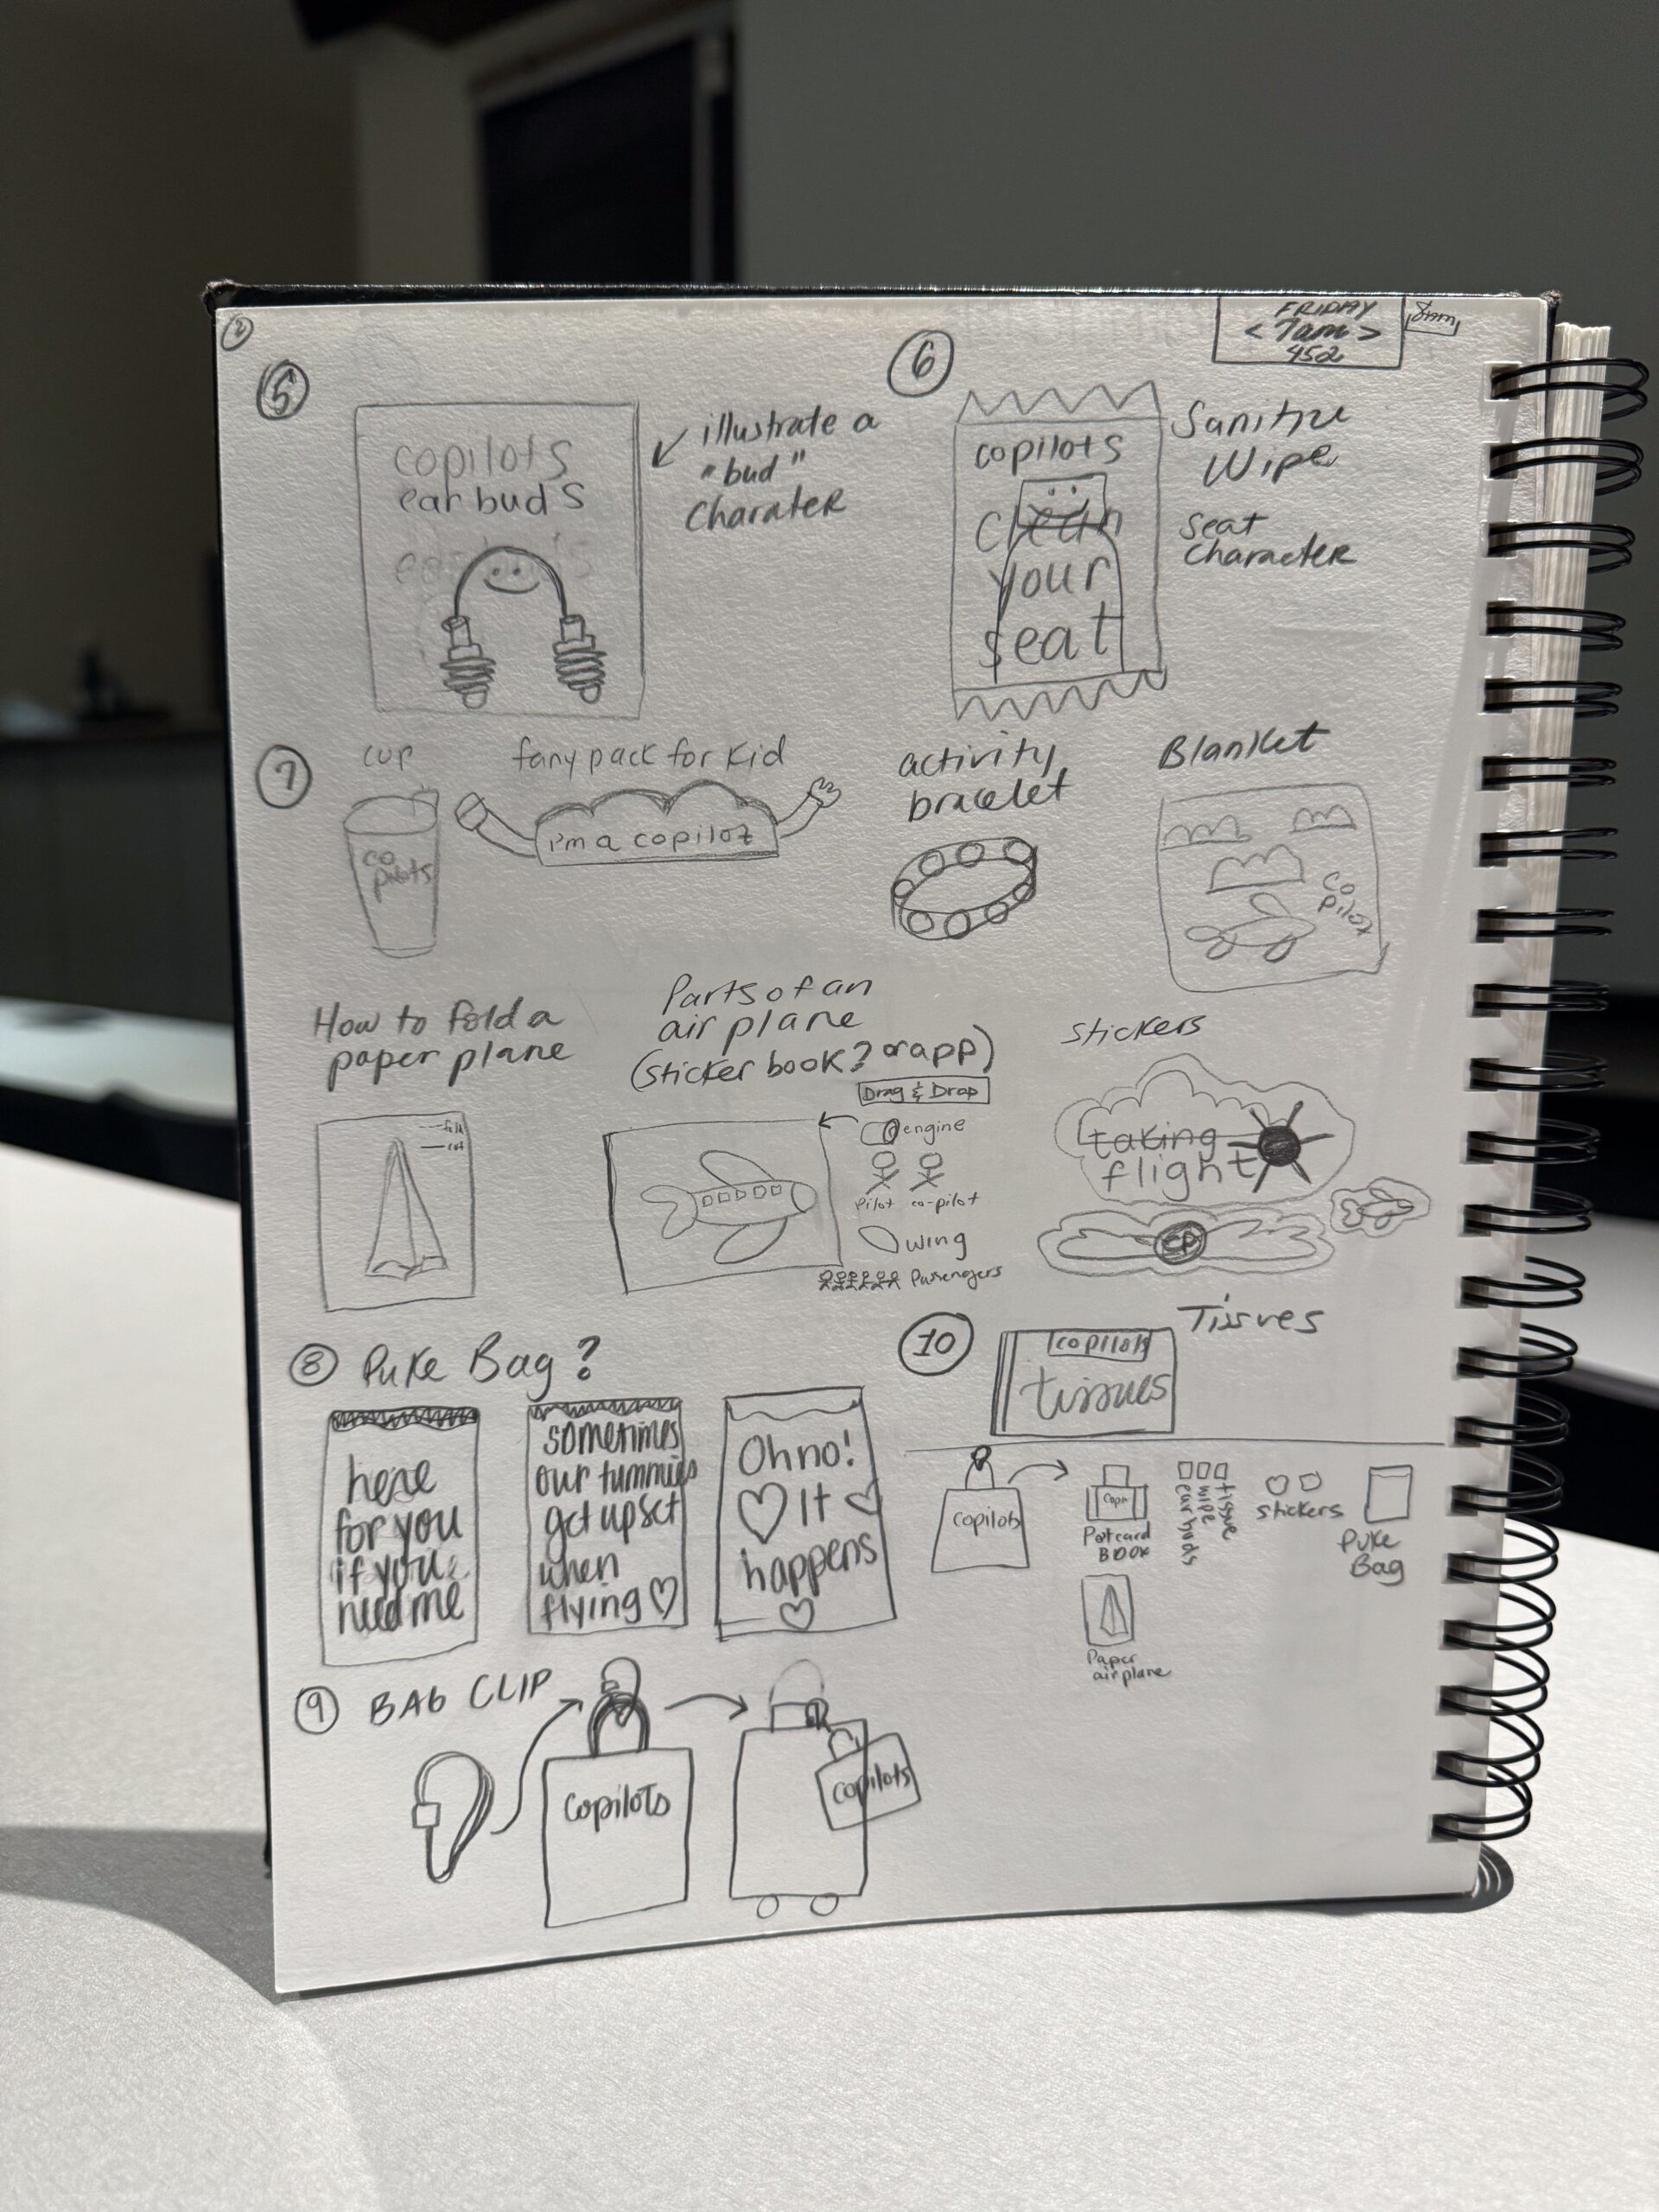 2
FRIDAY
< 7am >
452
5
copilots
earbuds
illustrate a
"bud"
Charater
6
copilots
clean
your
seat
Sanitize
Wipe
Seat
Character
7
cup
co
pilots
fany pack for kid
i'm a copilot
activity
bracelet
Blanket
co
pilot
How to fold a
paper plane
fold
cut
Parts of an
airplane
(sticker book? or app)
Drag & Drop
engine
pilot co-pilot
wing
Passengers
stickers
taking
flight
CP
8 Puke Bag?
here
for you
if you
need me
sometimes
our tummies
get upset
when
flying
Oh no!
It
happens
9 BAG CLIP
copilots
copilots
10
Tissues
copilots
tissues
copilots
Postcard
BOOK
ear buds
wipe
tissue
stickers
Puke
Bag
Paper
airplane